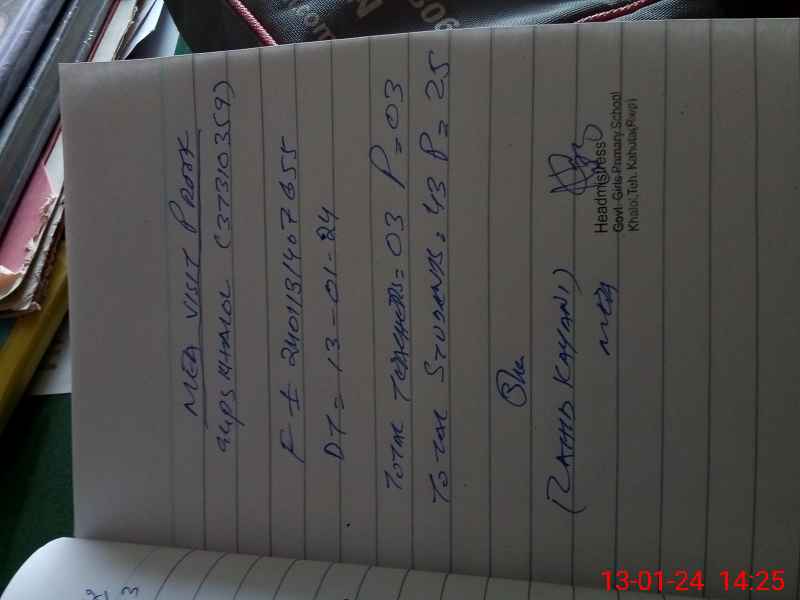 MEA VISIT PROOF
GGPS KHALOL (37310359)
F I 2401131407655
DT = 13-01-24
TOTAL TEACHERS = 03 P = 03
TOTAL STUDENTS = 43 P = 25
KAYANI)
MEA
Headmistress
Govt. Girls Primary School
Khalol, Teh. Kahuta(Rwp)
13-01-24 14:25